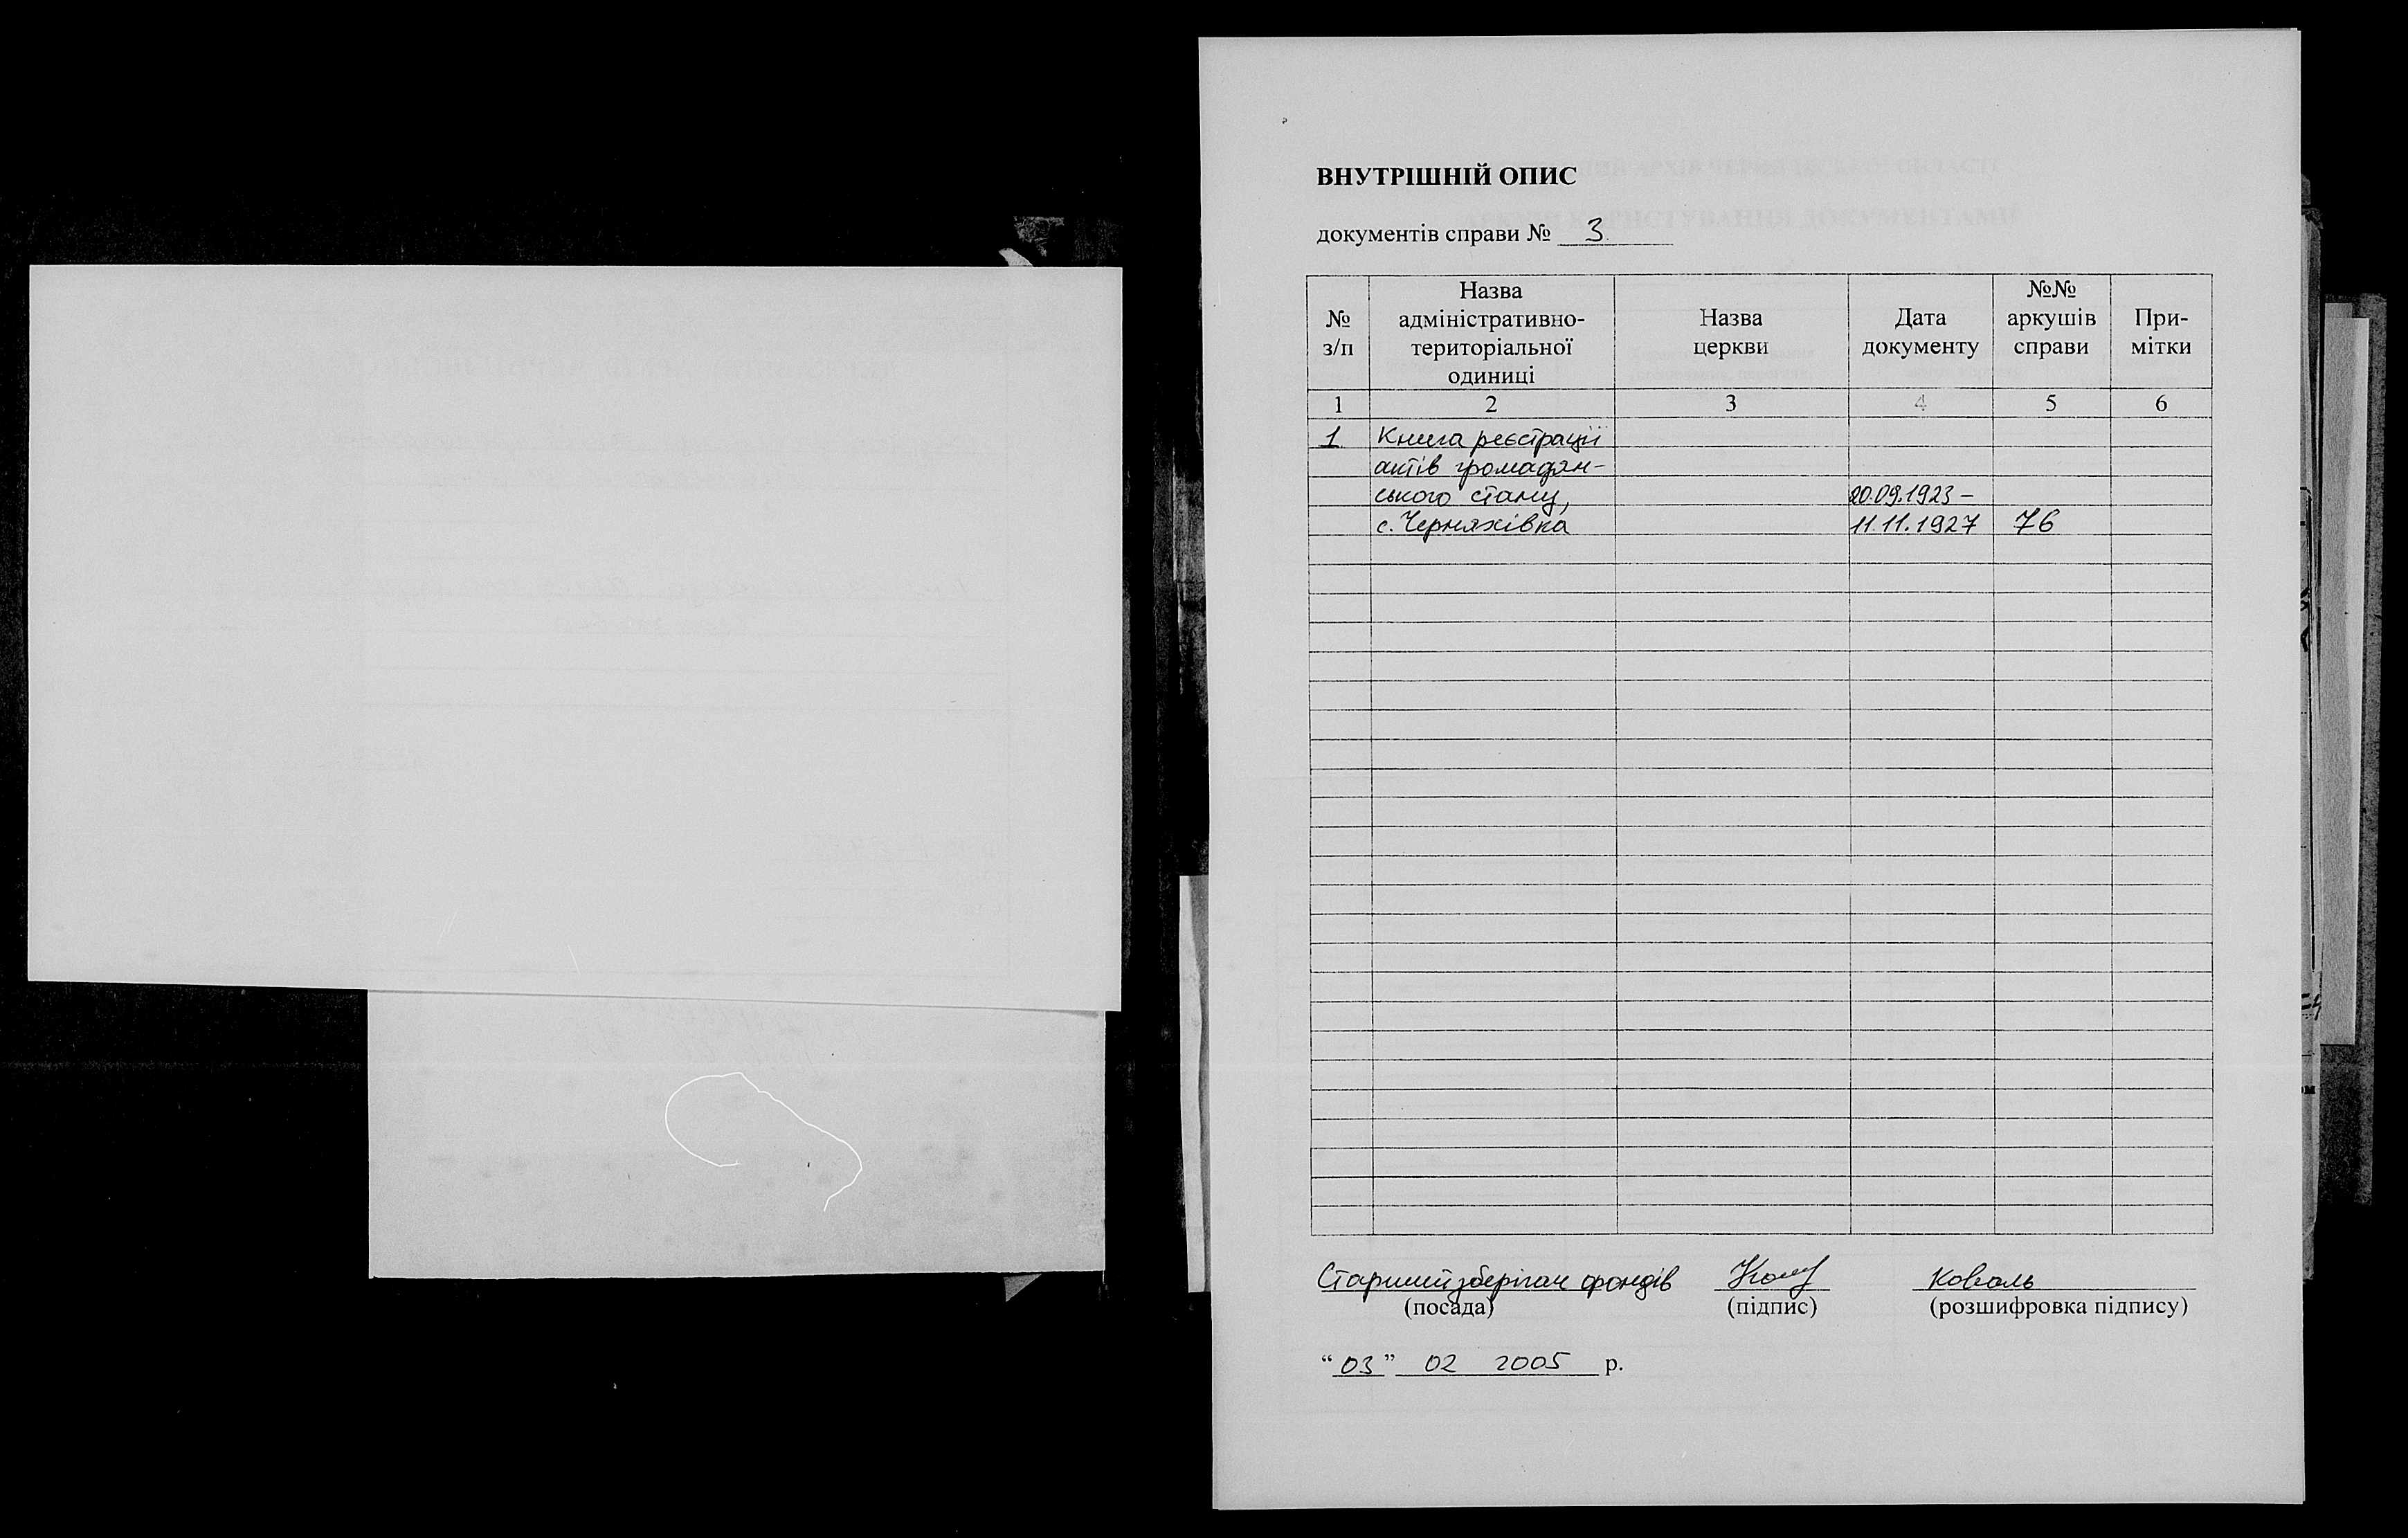 ВНУТРІШНІЙ ОПИС
документів справи № 3
№ з/п
Назва адміністративно-територіальної одиниці
Назва церкви
Дата документу
№№ аркушів справи
При-мітки
1 2 3 4 5 6
1 Книга реєстрації
актів громадян-
ського стану, 20.09.1923 –
с. Черняхівка 11.11.1927 76
Старший зберігач фондів Коваль
(посада) (підпис) (розшифровка підпису)
“03” 02 2005 р.